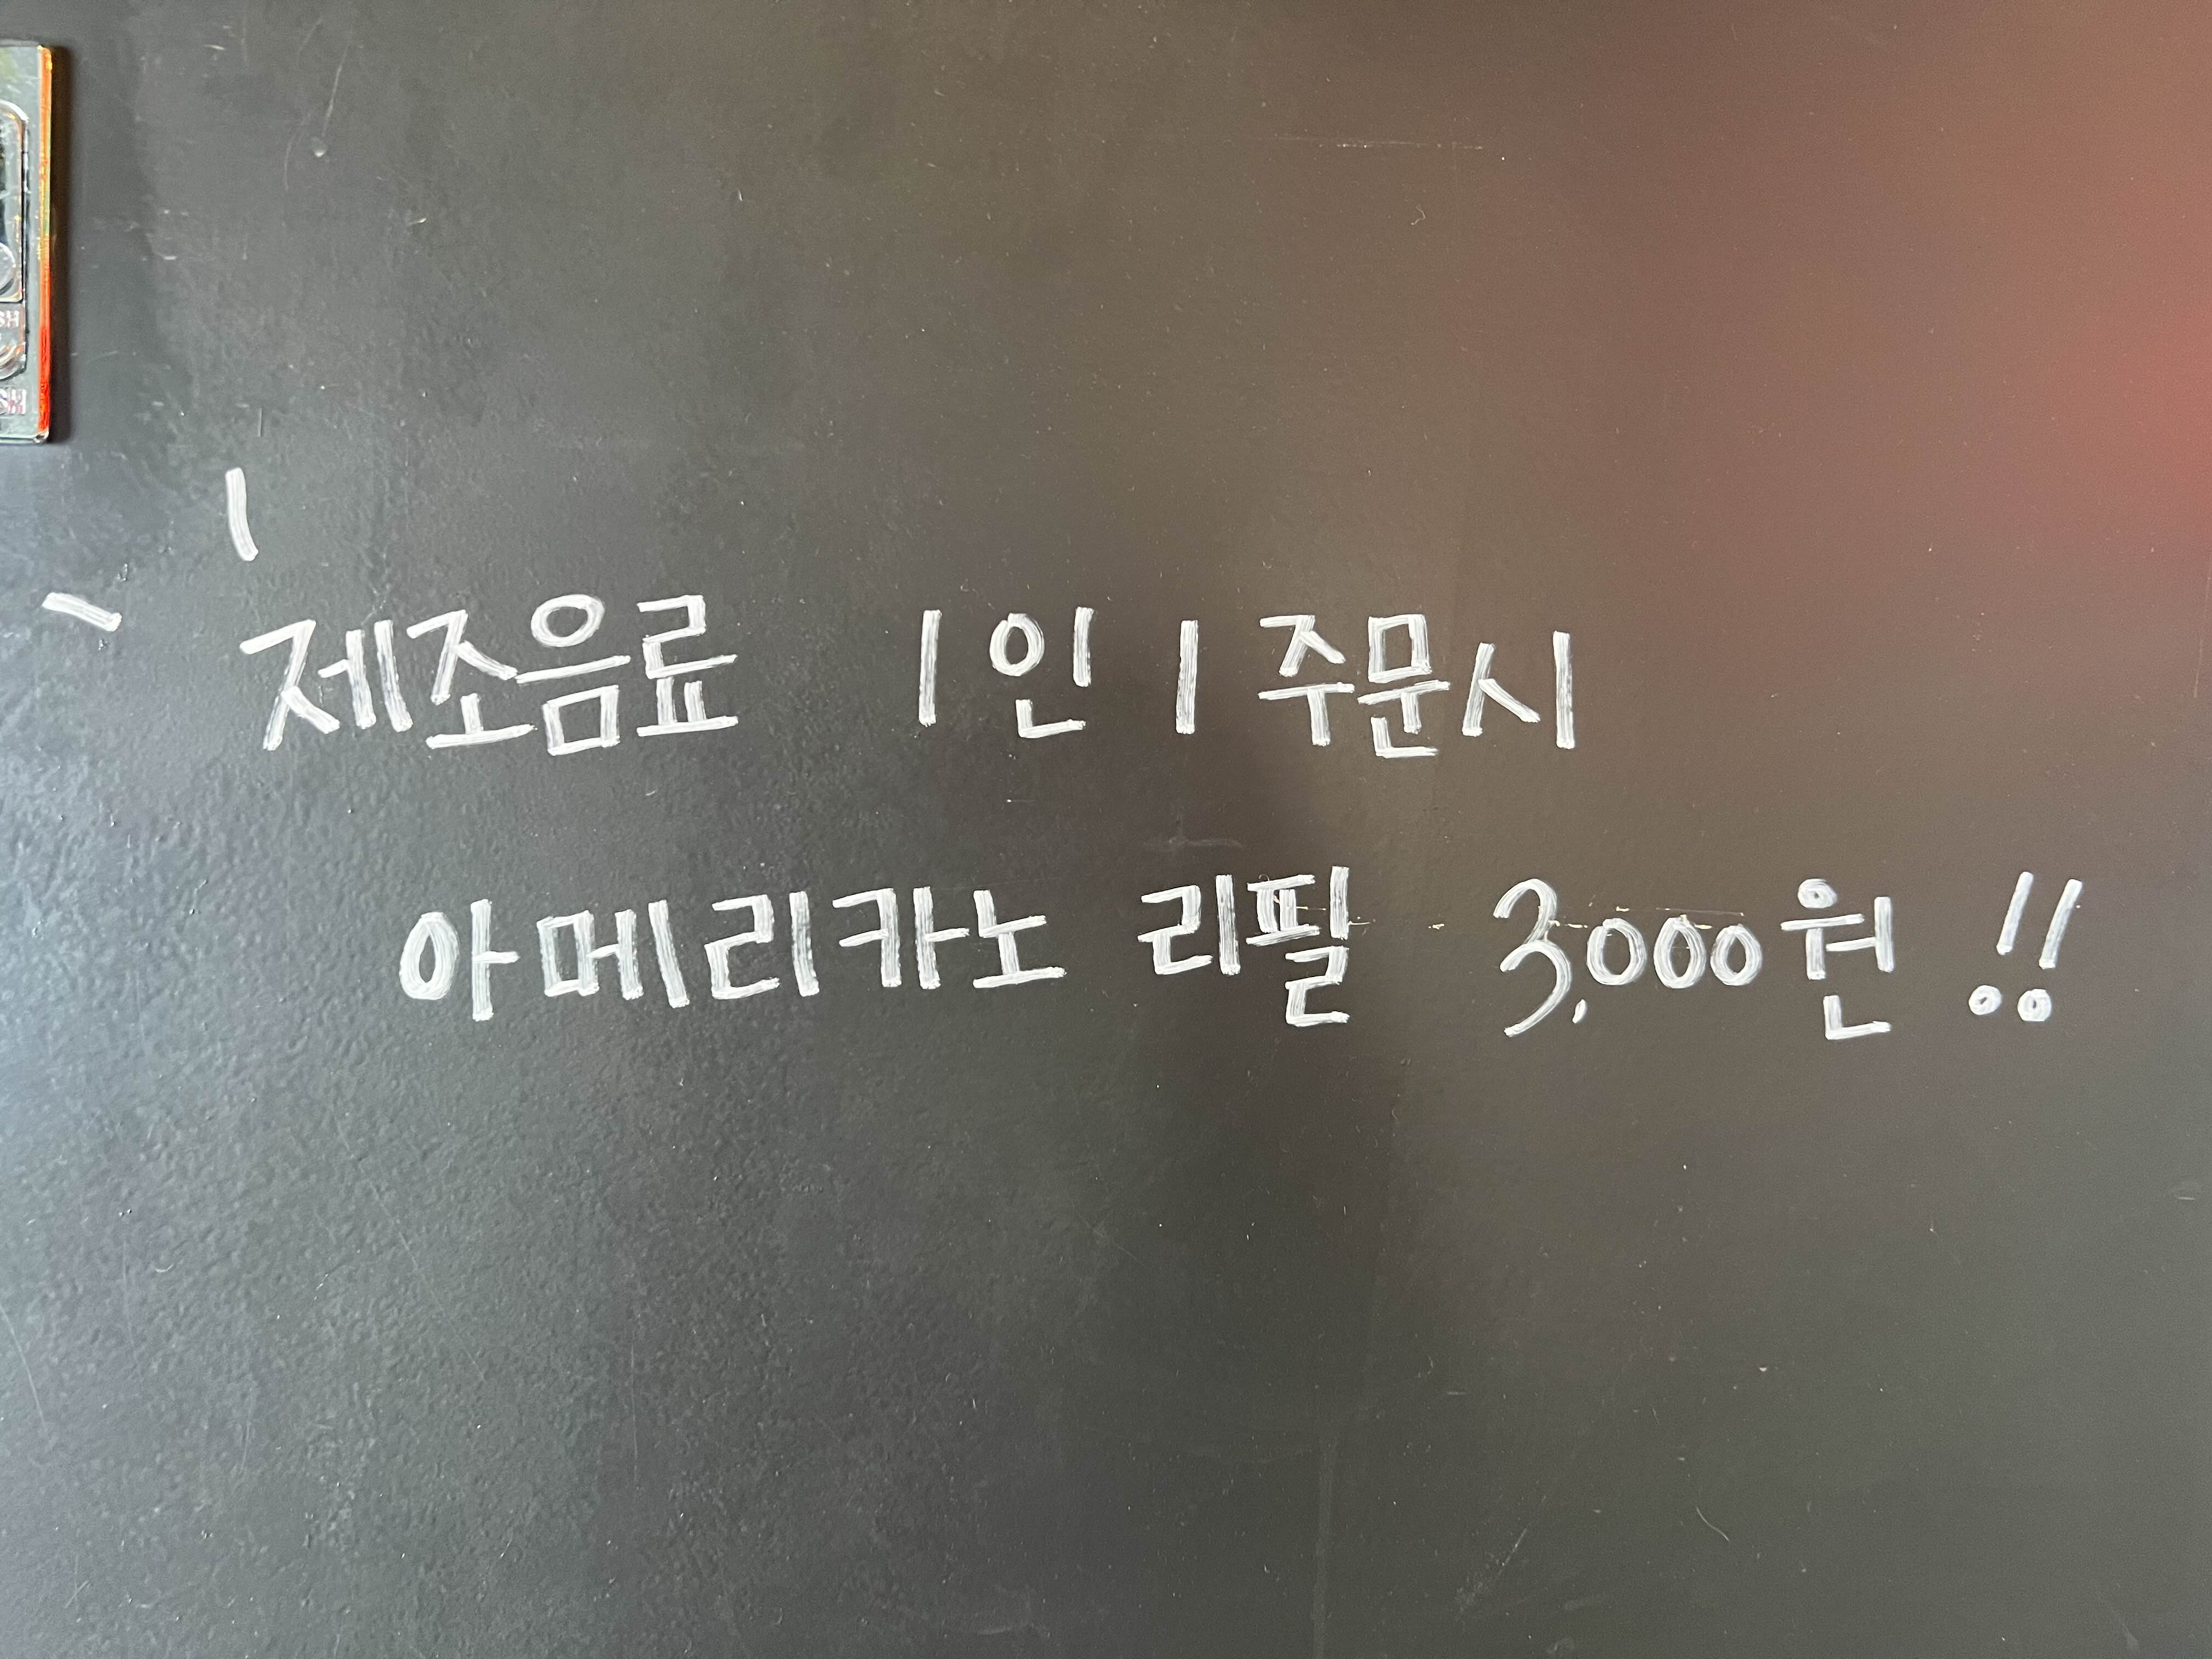 제조음료 1인 1 주문시
아메리카노 리필 3,000원 !!